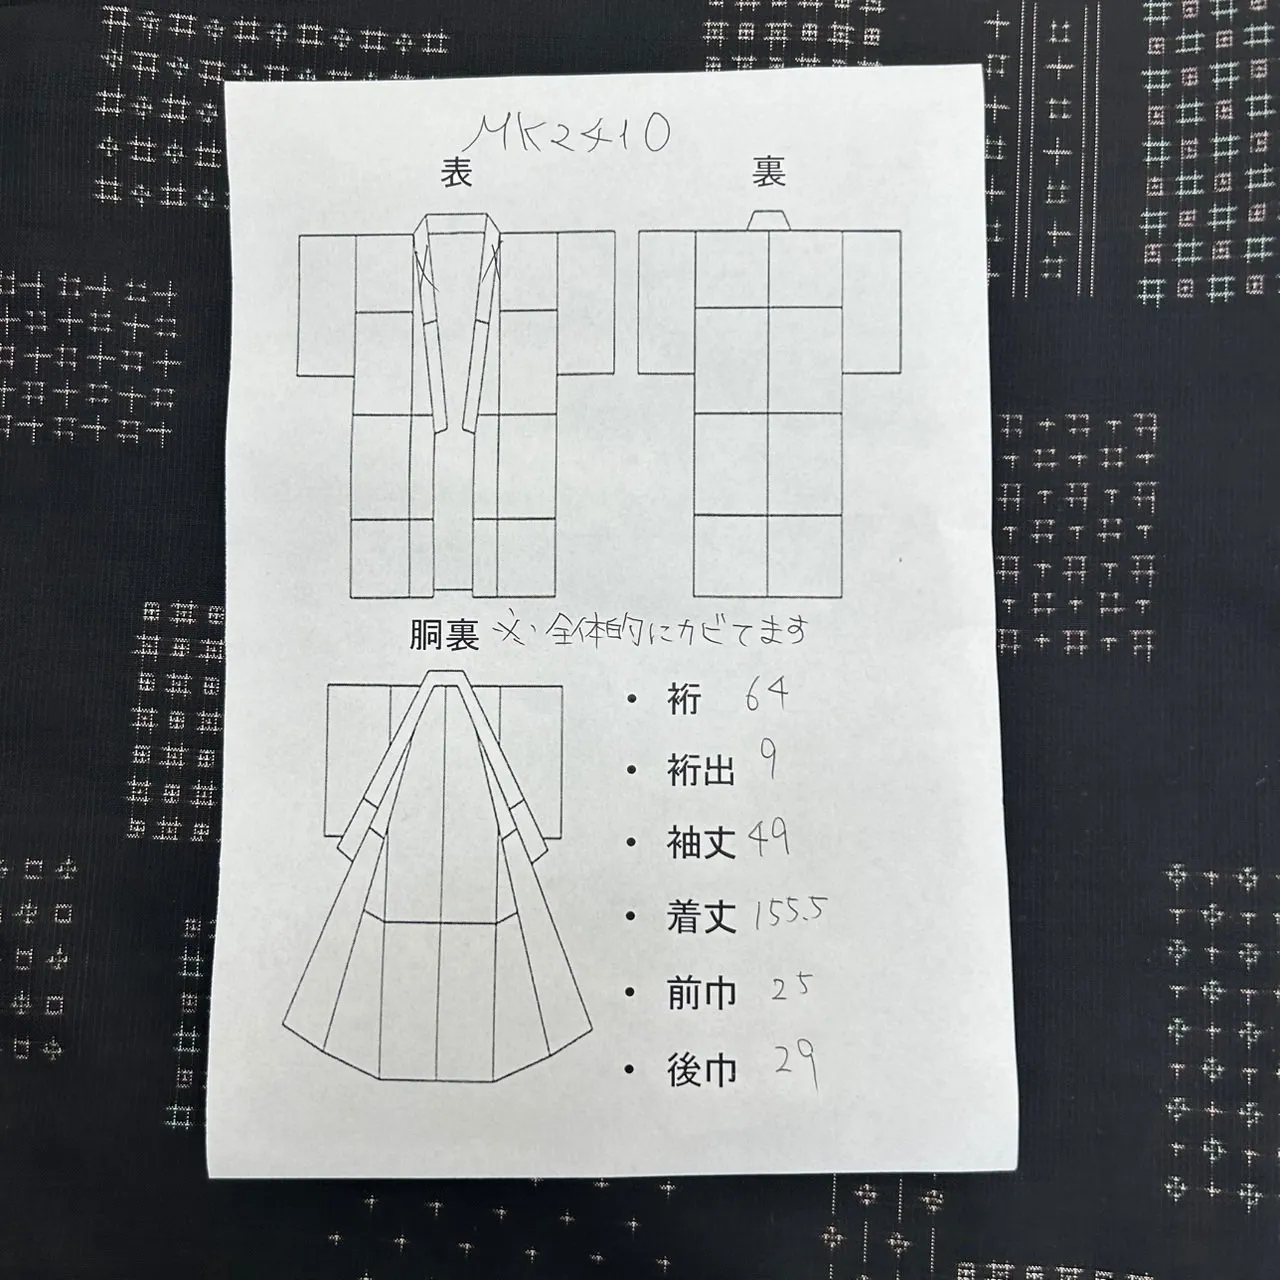 MK2410
表
裏
胴裏 ※・全体的にカビてます
・ 裄 64
・ 裄出 9
・ 袖丈 49
・ 着丈 155.5
・ 前巾 25
・ 後巾 29